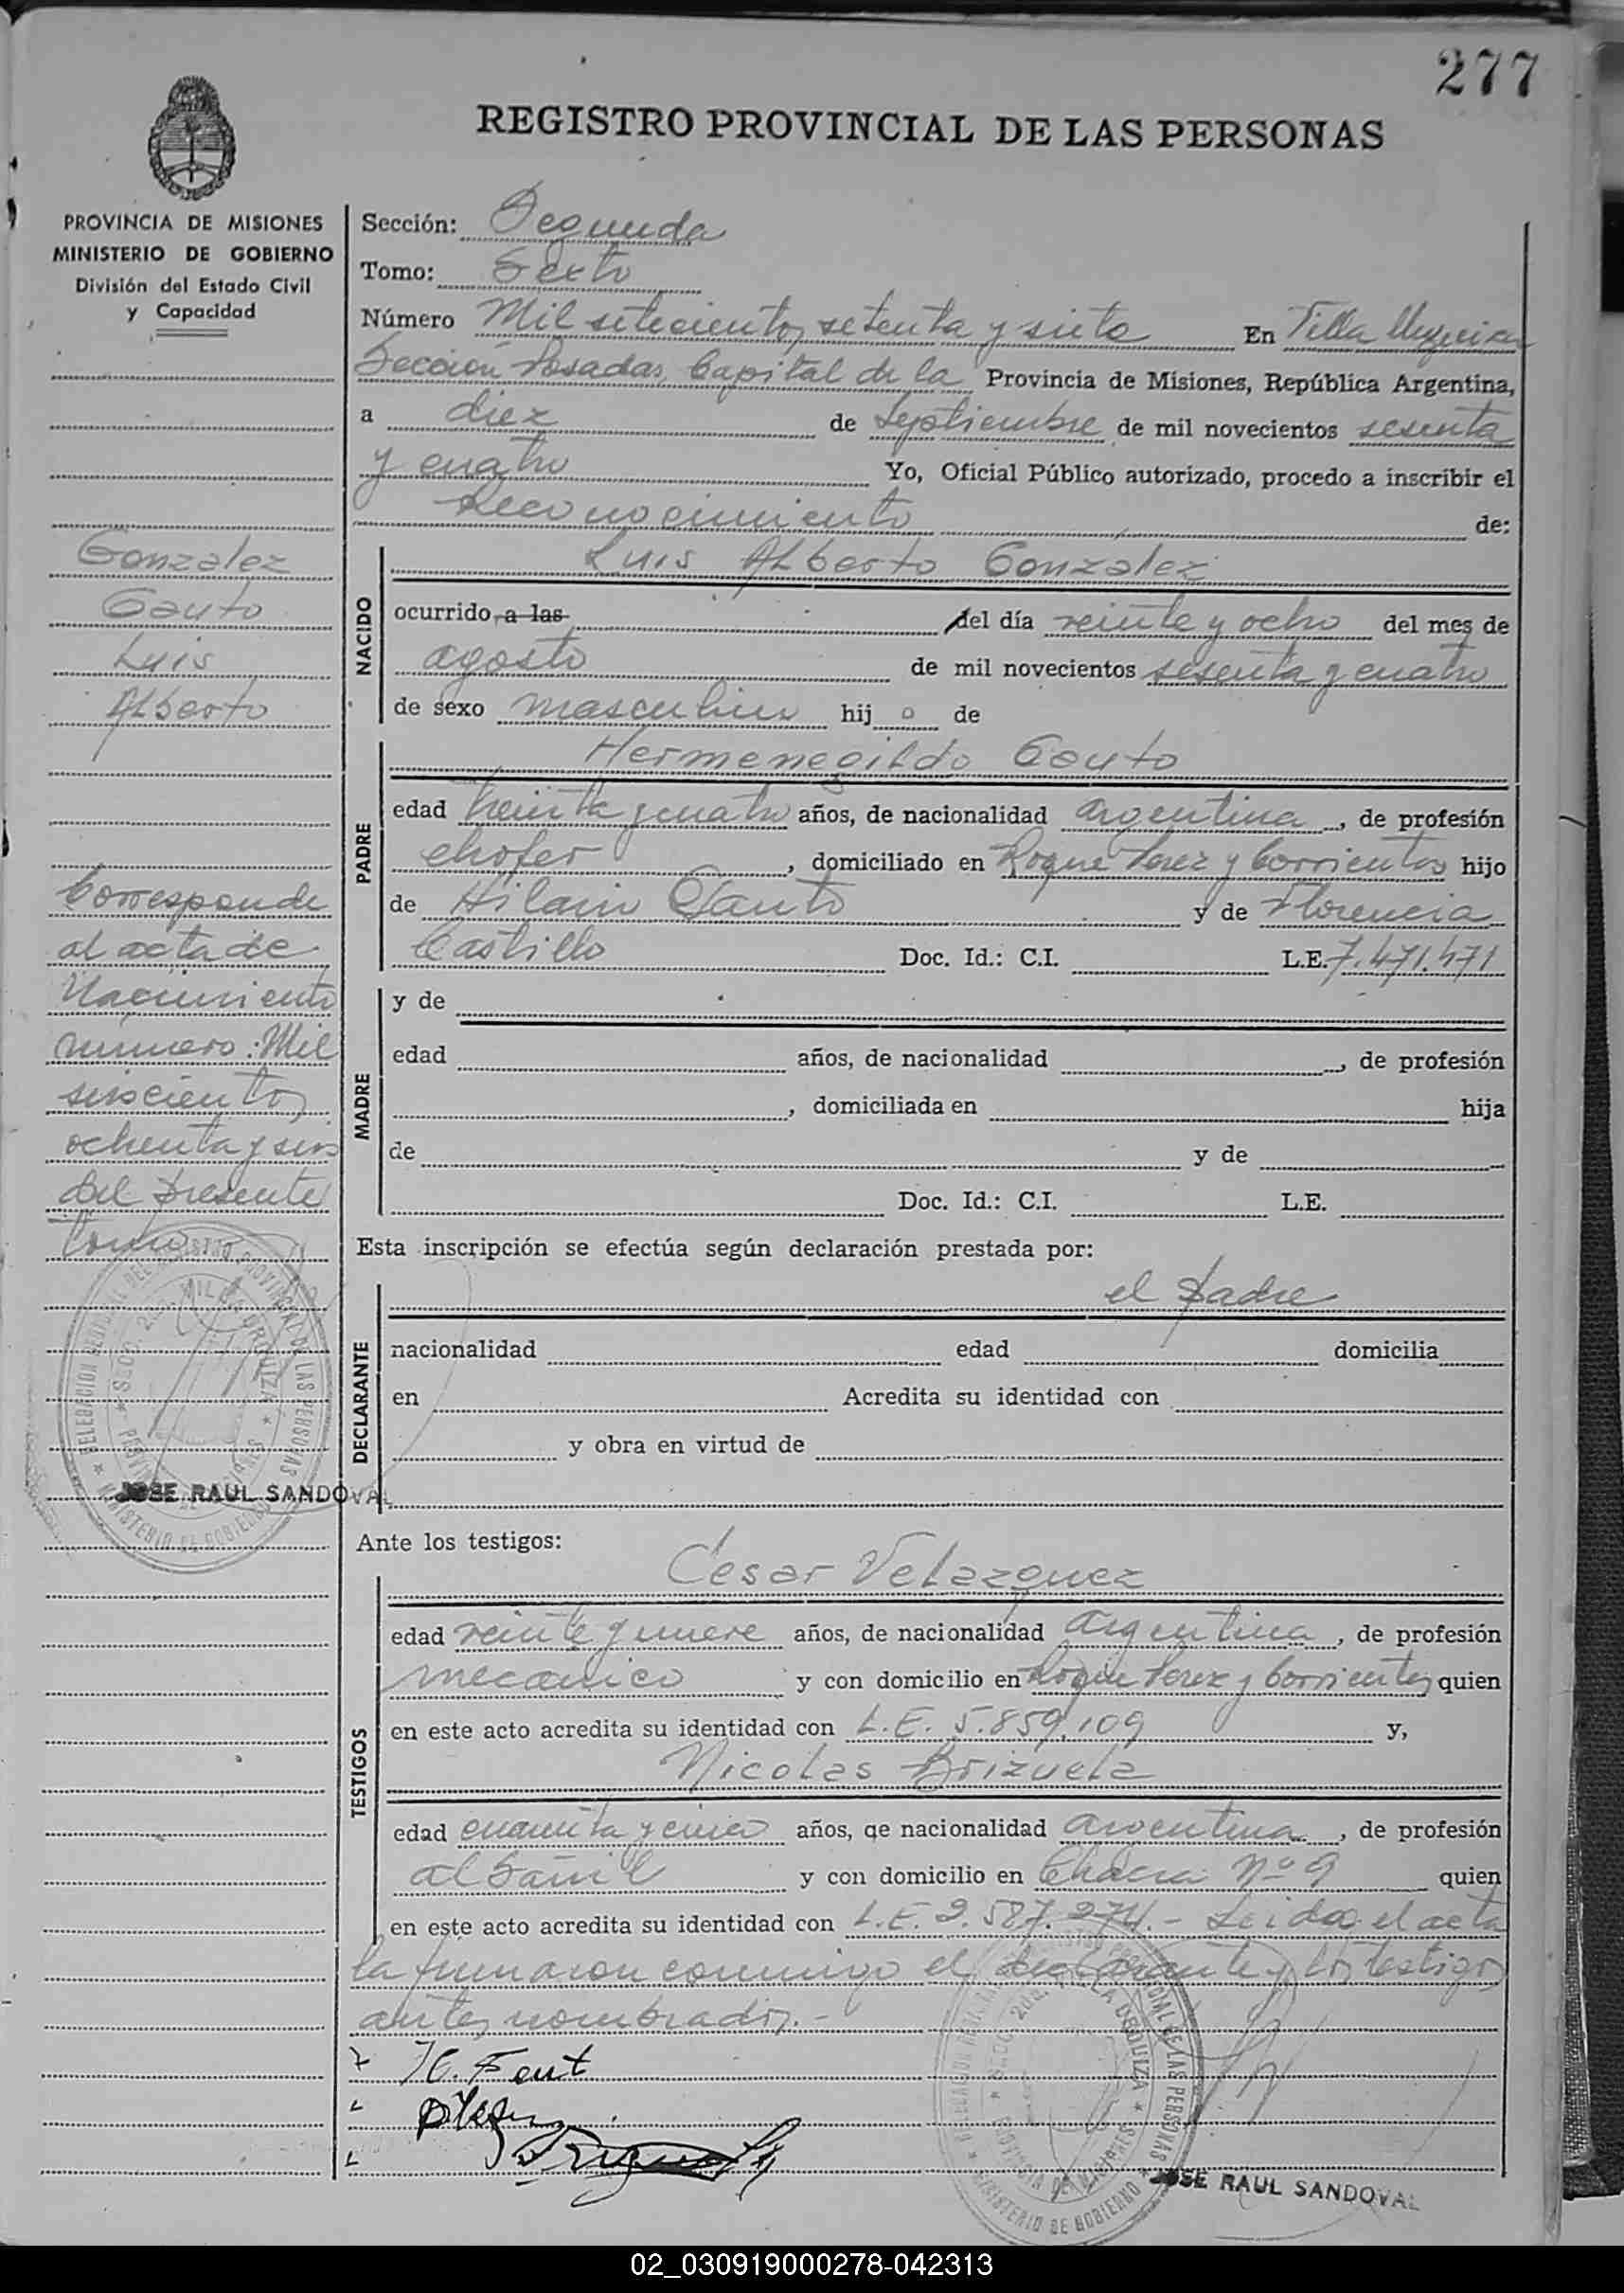 277
REGISTRO PROVINCIAL DE LAS PERSONAS
PROVINCIA DE MISIONES
MINISTERIO DE GOBIERNO
División del Estado Civil
y Capacidad
Gonzalez
Gauto
Luis
Alberto
Corresponde
al acta de
Nacimiento
número: Mil
seiscientos
ochenta y seis
del presente
Tomo
JOSE RAUL SANDOVAL
Sección: Segunda
Tomo: Sexto
Número Mil setecientos setenta y siete En Villa Urquiza
Sección Posadas, Capital de la Provincia de Misiones, República Argentina,
a diez de Septiembre de mil novecientos sesenta
y cuatro Yo, Oficial Público autorizado, procedo a inscribir el
Reconocimiento de:
NACIDO
Luis Alberto Gonzalez
ocurrido a las del día veinte y ocho del mes de
agosto de mil novecientos sesenta y cuatro
de sexo masculino hij o de
PADRE
Hermenegildo Gauto
edad treinta y cuatro años, de nacionalidad argentina, de profesión
chofer, domiciliado en Roque Perez y Corrientes hijo
de Hilario Gauto y de Florencia
Castillo Doc. Id.: C.I. L.E. 7.471.471
MADRE
y de
edad años, de nacionalidad , de profesión
, domiciliada en hija
de y de
Doc. Id.: C.I. L.E.
Esta inscripción se efectúa según declaración prestada por:
DECLARANTE
el padre
nacionalidad edad domicilia
en Acredita su identidad con
y obra en virtud de
Ante los testigos:
TESTIGOS
Cesar Velazquez
edad veinte y nueve años, de nacionalidad argentina, de profesión
mecanico y con domicilio en Roque Perez y Corrientes quien
en este acto acredita su identidad con L.E. 5.859.109 y,
Nicolas Brizuela
edad cuarenta y cinco años, de nacionalidad argentina, de profesión
albañil y con domicilio en Chacra Nº 9 quien
en este acto acredita su identidad con L.E. 2.587.274.- Leida el acta
la firmaron conmigo el declarante y los testigos
antes nombrados.-
JOSE RAUL SANDOVAL
02_030919000278-042313